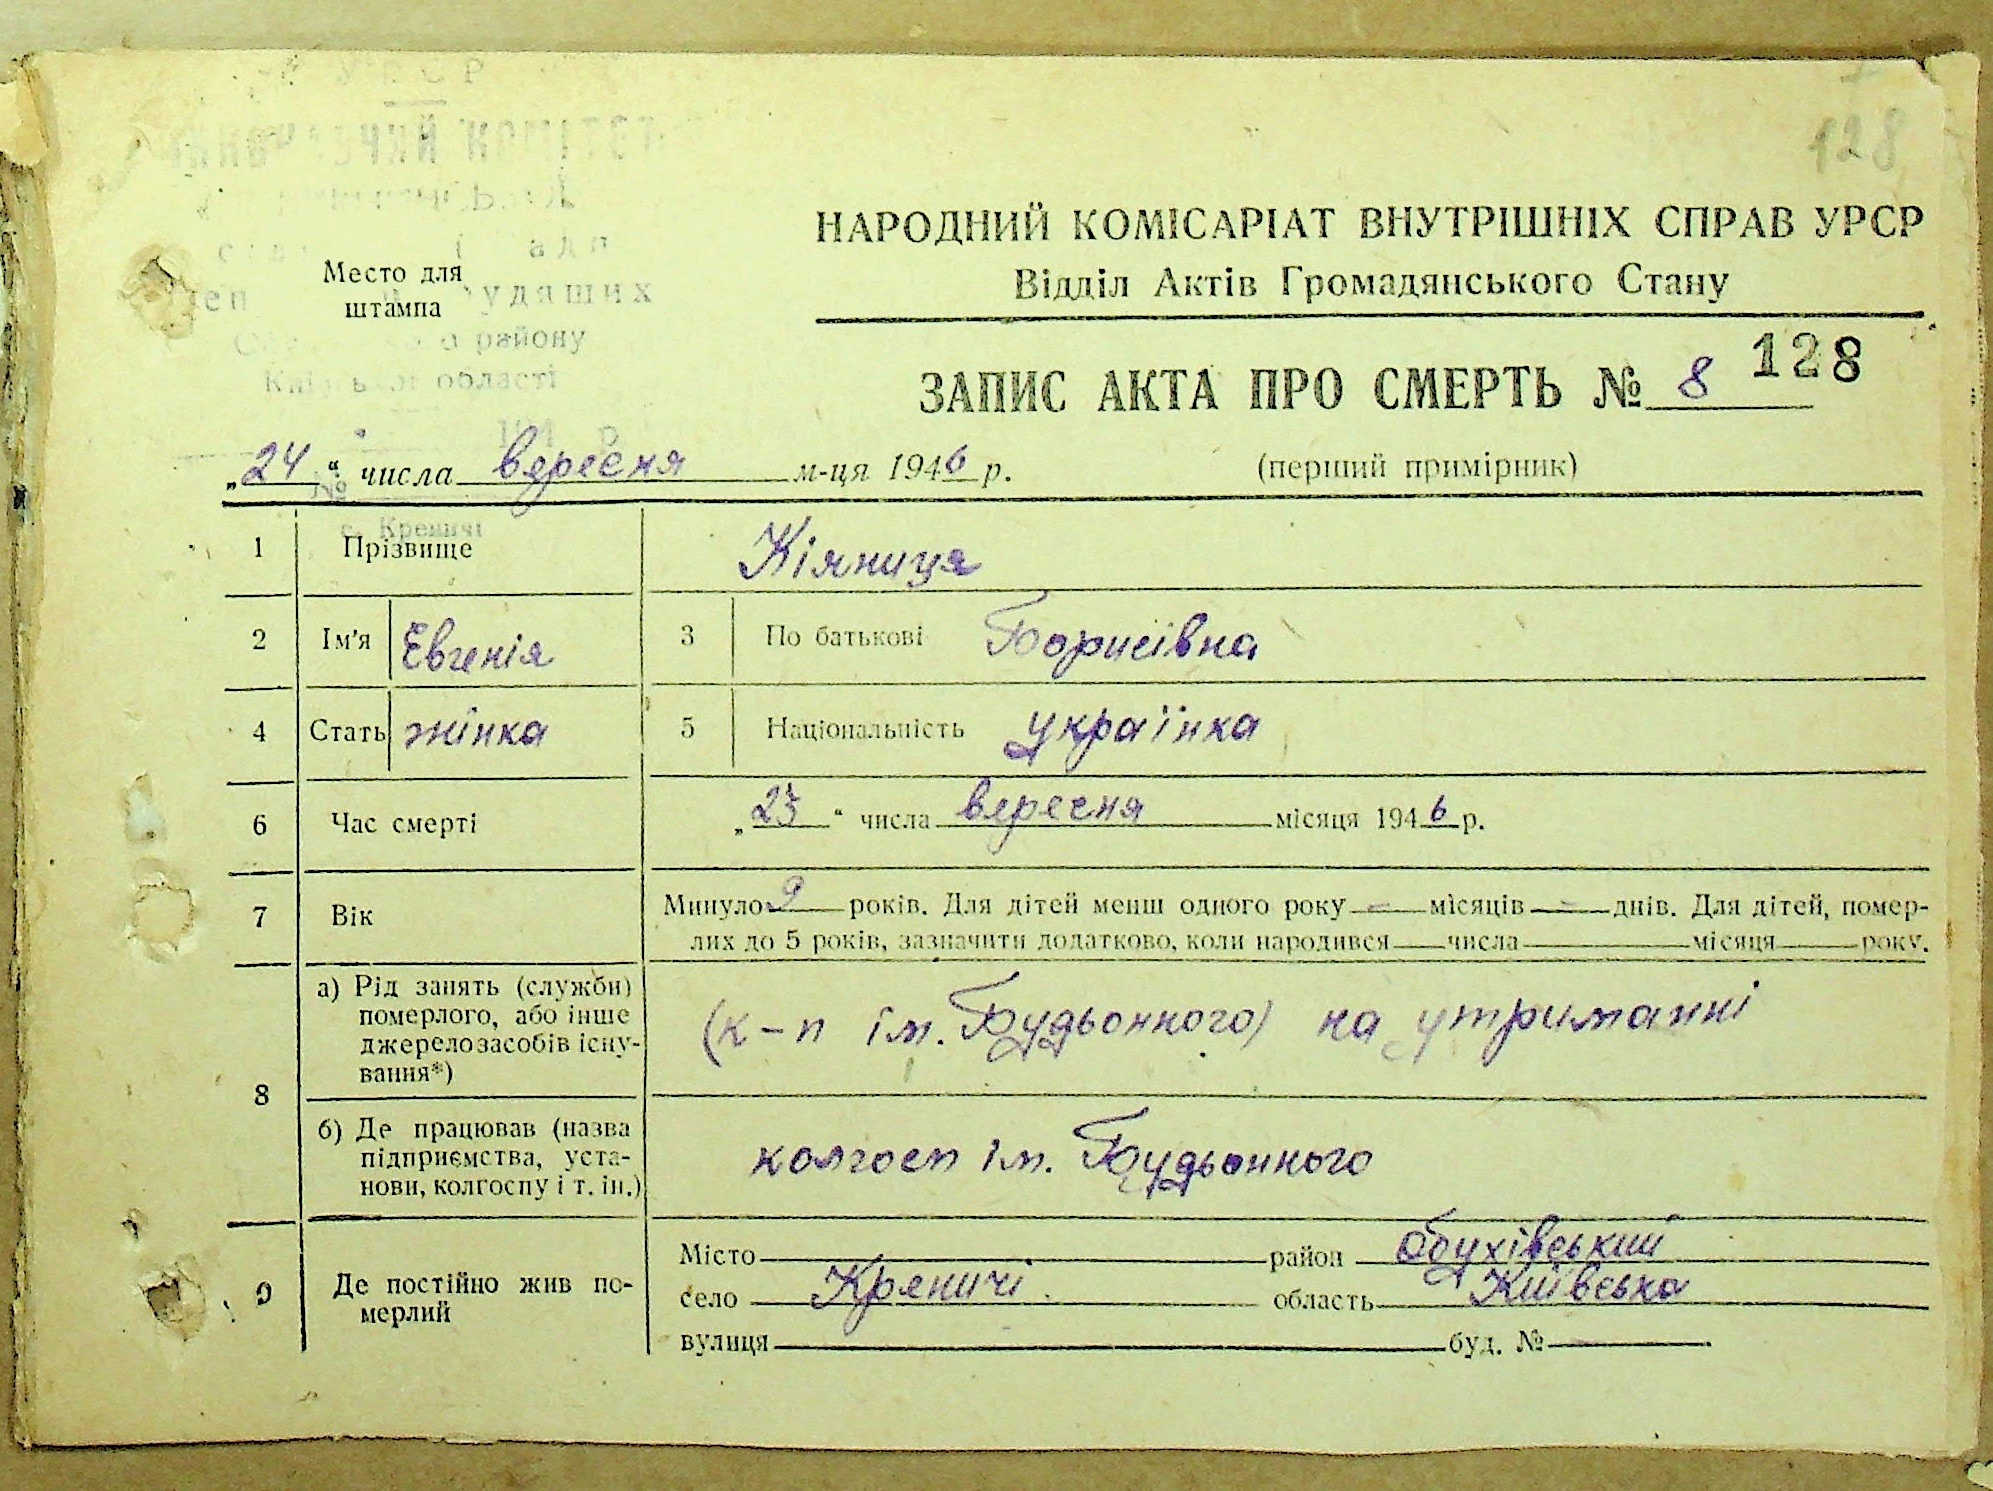 128
НАРОДНИЙ КОМІСАРІАТ ВНУТРІШНІХ СПРАВ УРСР
Відділ Актів Громадянського Стану
Место для
штампа
удящих
району
області
ЗАПИС АКТА ПРО СМЕРТЬ № 8 128
„24“ числа вересня м-ця 1946 р. (перший примірник)
№
с. Креничі
1 Прізвище Кіяниця
2 Ім'я Євгенія 3 По батькові Борисівна
4 Стать жінка 5 Національність українка
6 Час смерті „23“ числа вересня місяця 1946 р.
7 Вік Минуло 9 років. Для дітей менш одного року — місяців — днів. Для дітей, помер-
лих до 5 років, зазначити додатково, коли народився числа місяця року.
8 а) Рід занять (служби)
померлого, або інше
джерело засобів існу-
вання*)
(к-п ім. Будьонного) на утриманні
б) Де працював (назва
підприємства, уста-
нови, колгоспу і т. ін.)
колгосп ім. Будьонного
9 Де постійно жив по-
мерлий
Місто район Обухівський
село Креничі область Київська
вулиця буд. №